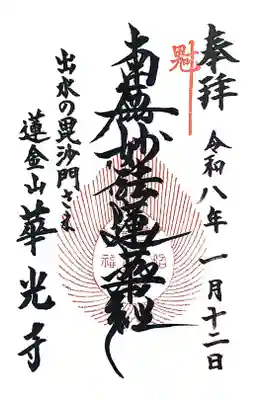 奉拝
令和八年 一月十二日
魁
南無妙法蓮華経
出水の毘沙門さま
蓮金山 華光寺